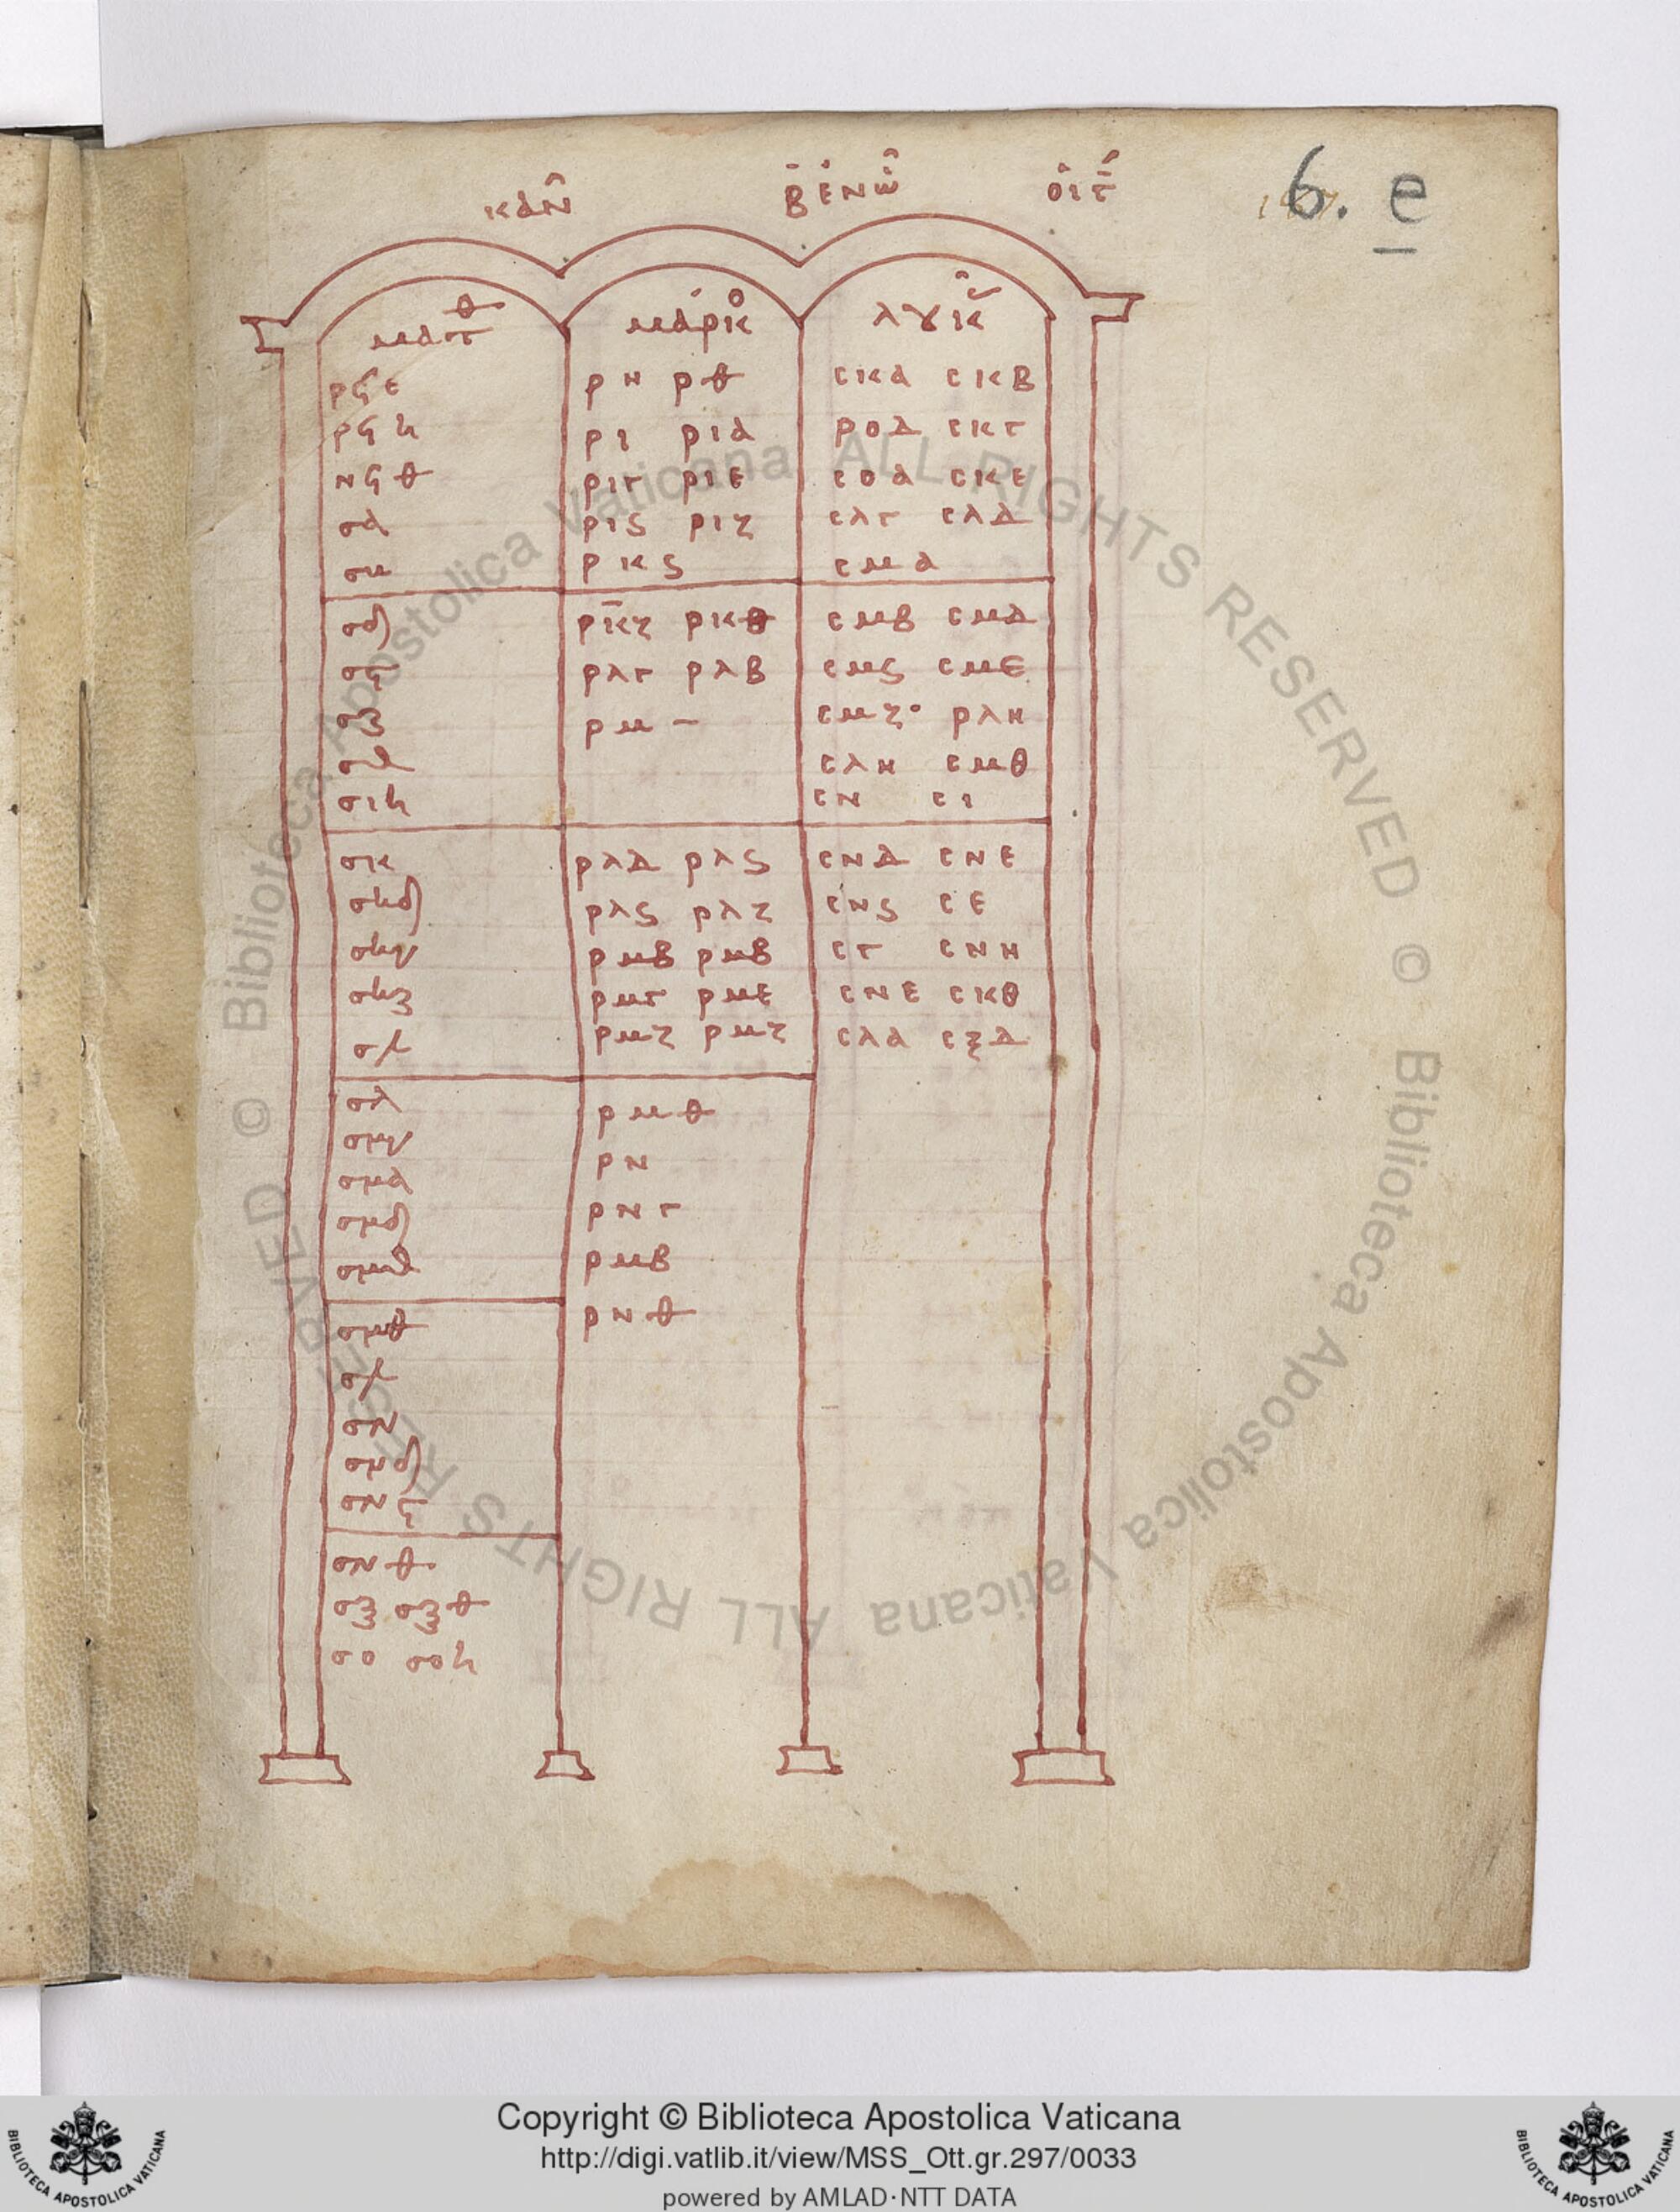 κὰν̑ β̄ ἐν ὧ̑ οἱ γ̄
6. e
ματθ μάρκο λουκ
ρϟε ρη ρθ σκα σκβ
ρϟη ρι ρια ροδ σκγ
νϟθ ριγ ριε σοα σκε
σα ριϛ ριζ σλγ σλδ
ση ρκϛ σμα
σδ ρκζ ρκθ σμβ σμδ
σϛ ρλγ ρλβ σμϛ σμε
ρμ – σμζ ρλη
σλη σμθ
σιη σν σι
σκ ρλδ ρλϛ σνδ σνε
σκδ ρλϛ ρλζ σνϛ σε
σκγ ρμβ ρμβ σγ σνη
σκζ ρμγ ρμε σνε σκθ
ρμζ ρμζ σλα σξδ
σλ ρμθ
σμγ ρν
σμα ρνγ
σμδ ρμβ
σμθ ρνθ
σν
σμδ
σνϛ
σνθ
σξ σξθ
σο σοη
Copyright © Biblioteca Apostolica Vaticana
http://digi.vatlib.it/view/MSS_Ott.gr.297/0033
powered by AMLAD·NTT DATA
BIBLIOTECA APOSTOLICA VATICANA
BIBLIOTECA APOSTOLICA VATICANA
© Biblioteca Apostolica Vaticana ALL RIGHTS RESERVED © Biblioteca Apostolica Vaticana ALL RIGHTS RESERVED